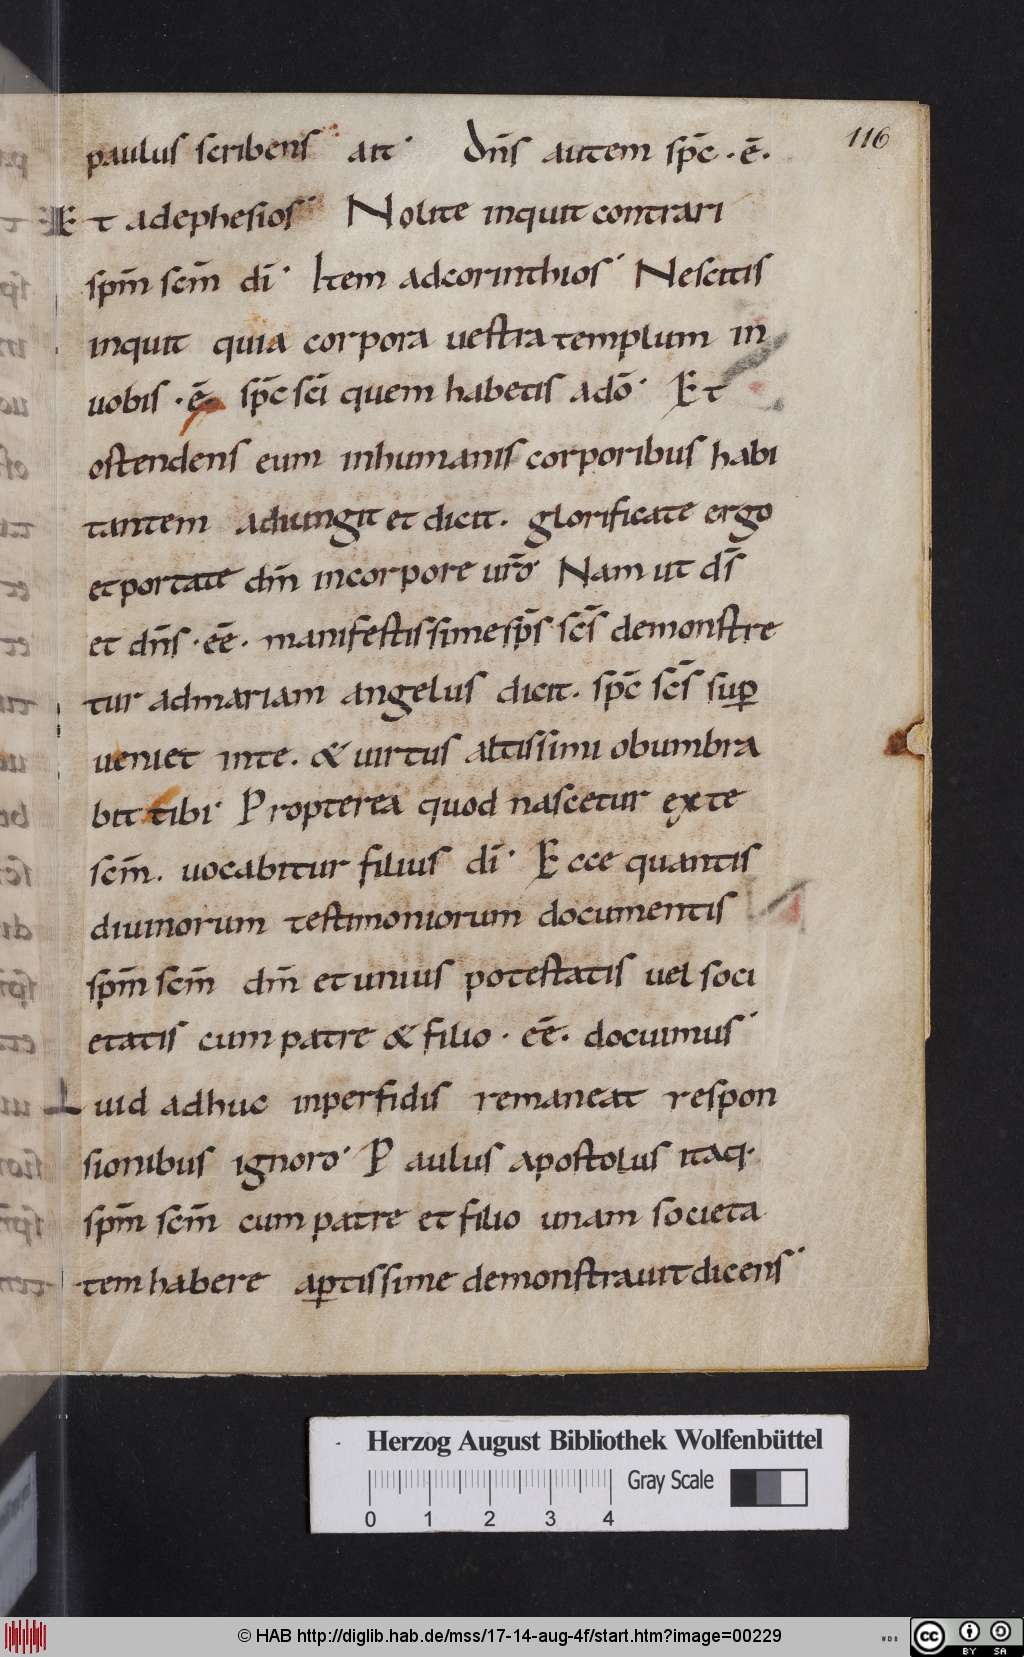 116
paulus scribens ait· Dn̄s autem sp̄c ·ē·
Et adephesios· Nolite inquit contrari
sp̄m scm̄ dī· Item adcorinthios· Nescitis
inquit quia corpora uestra templum in
uobis ·ē· sp̄c scī quem habetis adō· Et
ostendens eum inhumanis corporibus habi
tantem adiungit et dicit. glorificate ergo
et portate dm̄ incorpore ur̄o· Nam ut ds̄
et dn̄s ·eē· manifestissime sp̄s sc̄s demonstre
tur admariam angelus dicit. sp̄c sc̄s suꝑ
ueniet inte. & uirtus altissimi obumbra
bit tibi· Propterea quod nascetur exte
scm̄. uocabitur filius dī· Ecce quantis
diuinorum testimoniorum documentis
sp̄m scm̄ dm̄ et unius potestatis uel soci
etatis cum patre & filio · eē· docuimus·
uid adhuc inperfidis remaneat respon
sionibus ignoro· Paulus apostolus itaq·
sp̄m scm̄ cum patre et filio unam societa
tem habere aꝑtissime demonstrauit dicens·
Herzog August Bibliothek Wolfenbüttel
Gray Scale
0 1 2 3 4
© HAB http://diglib.hab.de/mss/17-14-aug-4f/start.htm?image=00229
WDB
cc BY SA